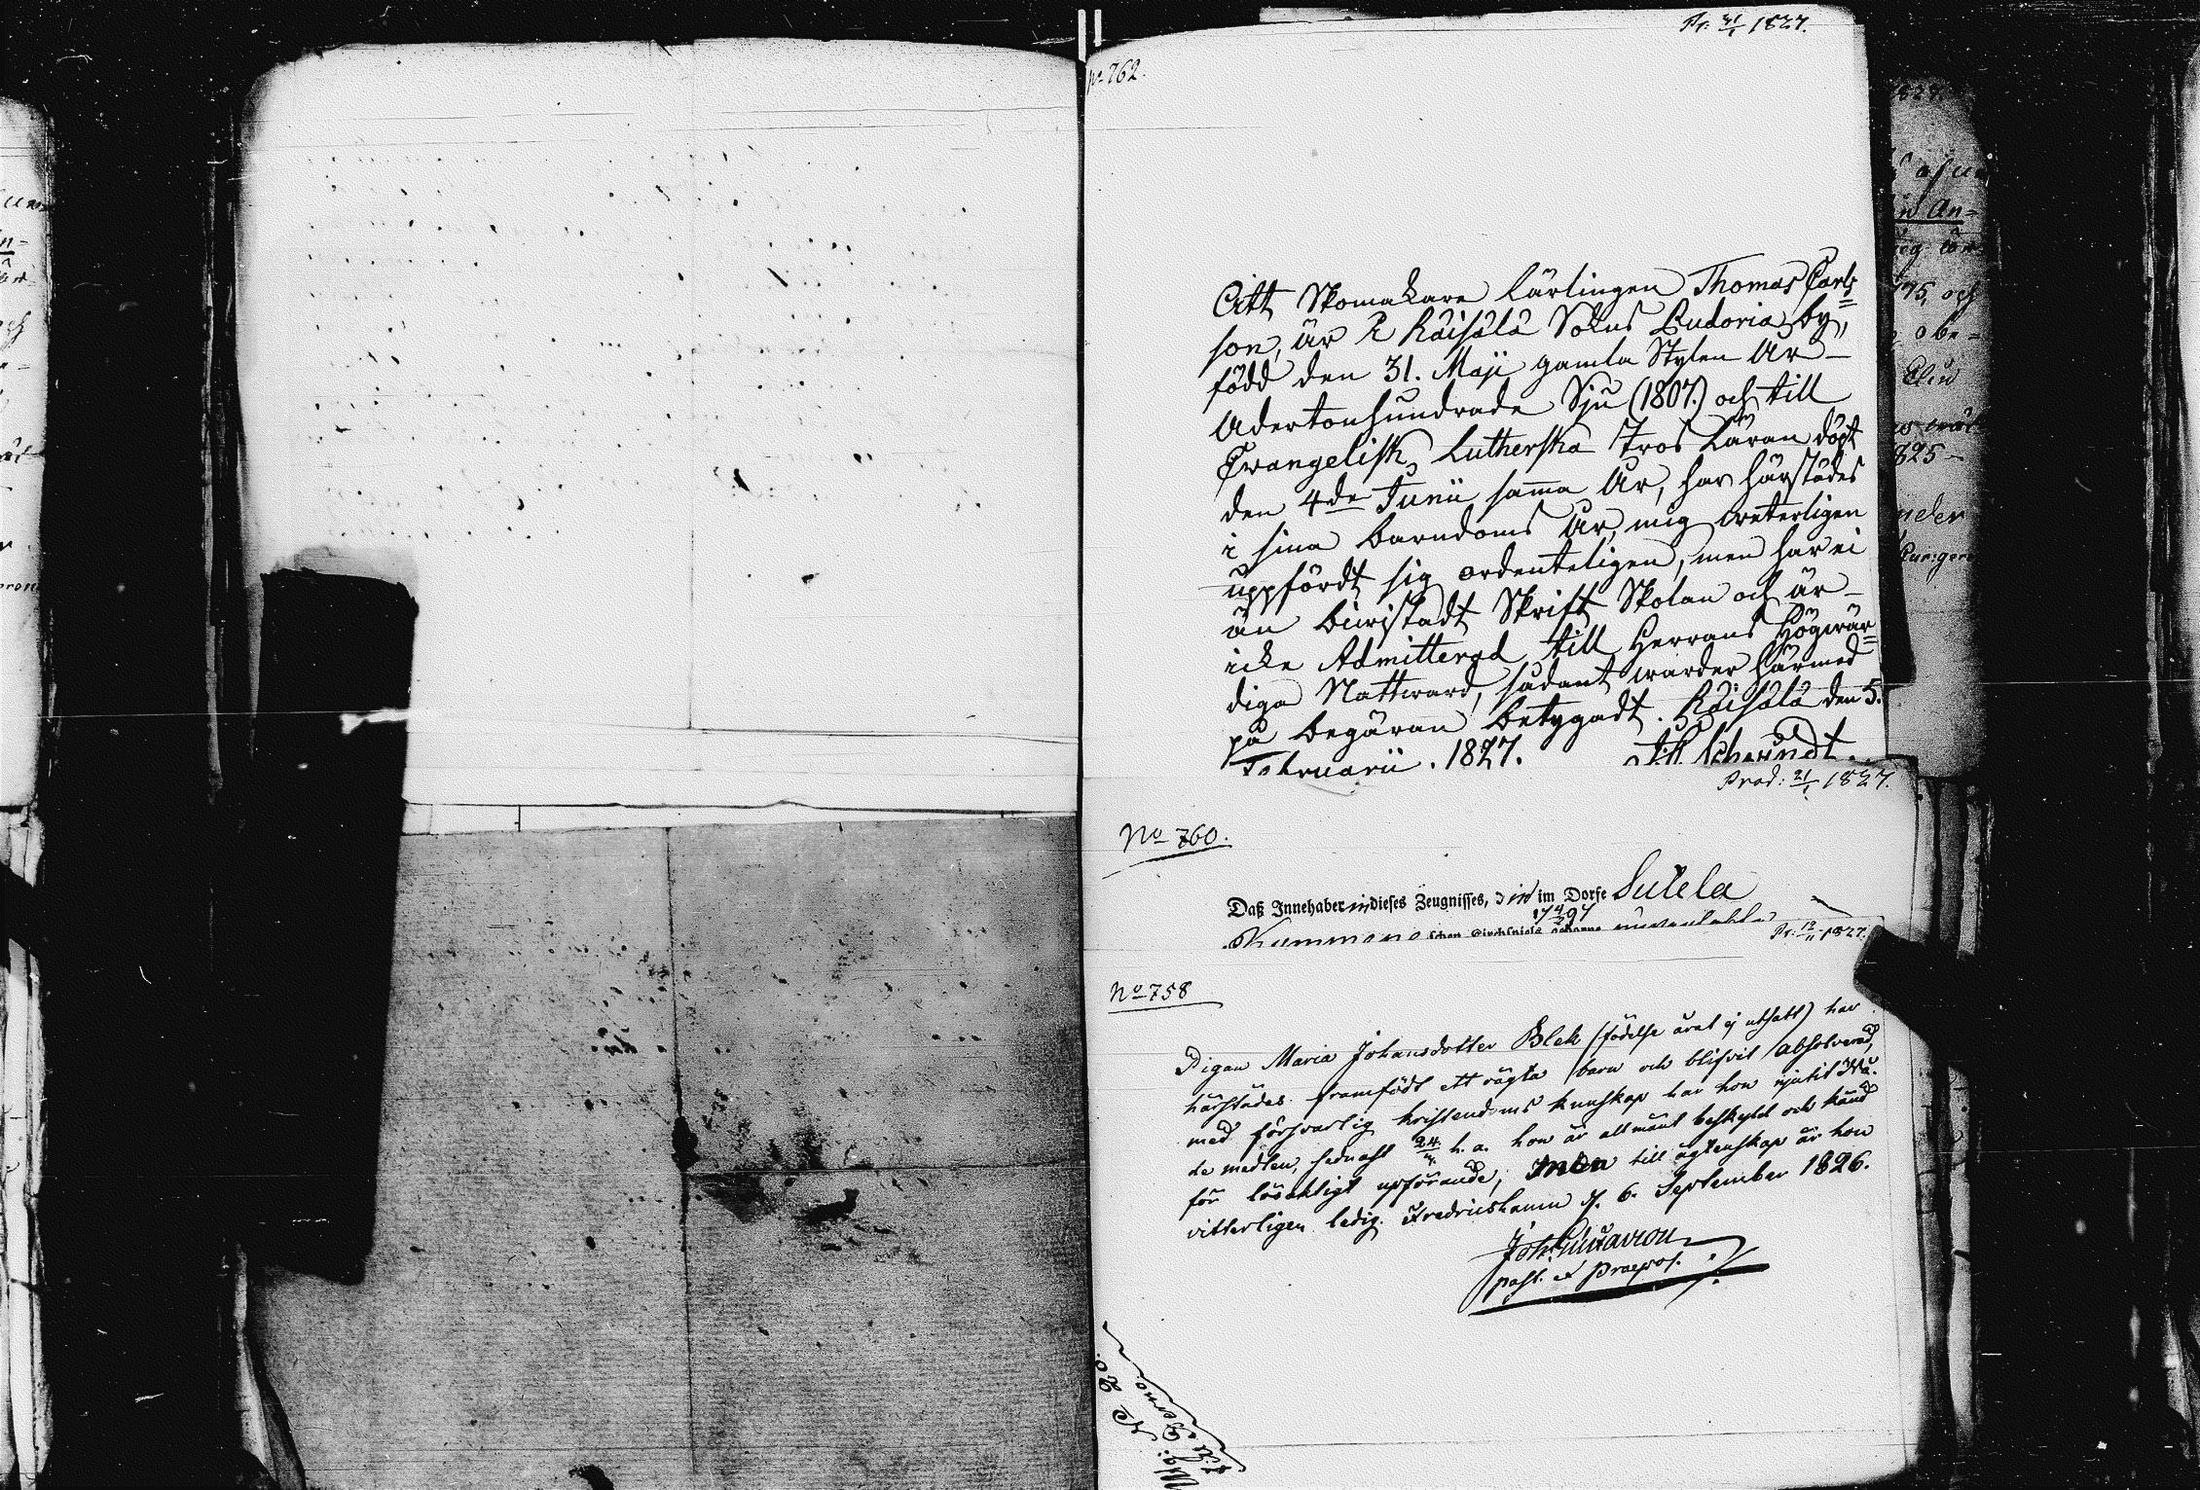 Pr: 21/1 1827.
No 762.
Att Skomakare Lärlingen Thomas Carls=
son, är i Räisälä Sokns Ludoria by,
född den 31. Maji gamla Stylen År
Adertonhundrade Sju (1807.) och till
Evangelisk Lutherska Tros Läran döpt
den 4de Junii samma År, har härstädes
i sina barndoms År, mig veterligen
uppfördt sig ordenteligen, men har ei
än biwistadt Skrift Skolan och är
icke Admitterad till Herrans Högwär=
diga Nattward, sådant warder härmed
på begäran betygadt. Räisälä den 5.
Februarii. 1827.
Prod: 21/1 1827.
No 760.
Daß Innehaberin dieses Zeugnisses, die im Dorfe Sutela
17 4/2 97
schen Kirchspiels geborne
Pr. 12/11 1827.
No 758
Pigan Maria Johansdotter Blek (födelse året ej utsatt) har
härstädes framfödt ett oägta barn och blifvit absolverad,
med försvarlig kristendoms kunskap har hon njutit Nå-
de medlen, sednast 24/4 h. a. hon är allmänt beskyld och känd
för lösaktigt upförande, men till ägtenskap är hon
vitterligen ledig. Fredricshamn d. 6. September 1826.
Past. et Praepos.
No 20.